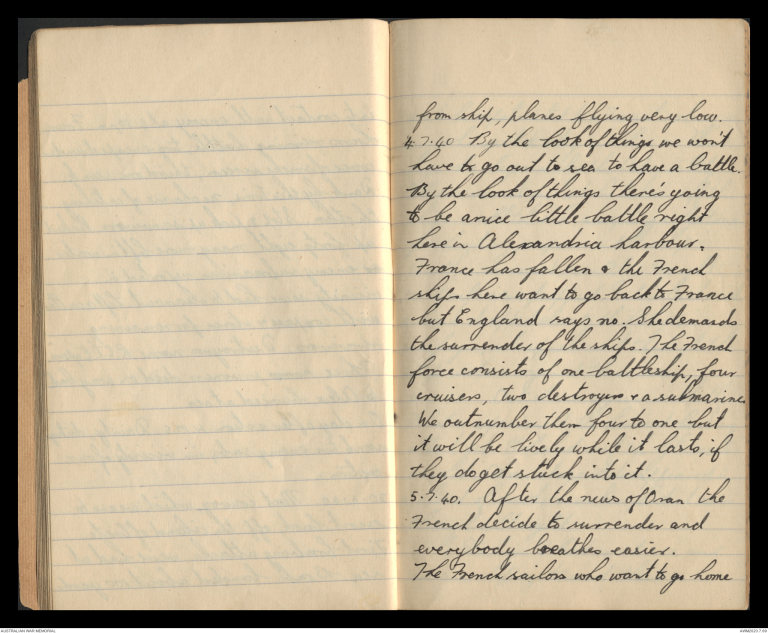 from ship, planes flying very low.
4.7.40 By the look of things we won't
have to go out to sea to have a battle.
By the look of things there's going
to be a nice little battle right
here in Alexandria harbour.
France has fallen & the French
ships here want to go back to France
but England says no. She demands
the surrender of the ships. The French
force consists of one battleship, four
cruisers, two destroyers & a submarine
We outnumber them four to one but
it will be lively while it lasts, if
they do get stuck into it.
5.7.40. After the news of Oran the
French decide to surrender and
everybody breathes easier.
The French sailors who want to go home
AUSTRALIAN WAR MEMORIAL